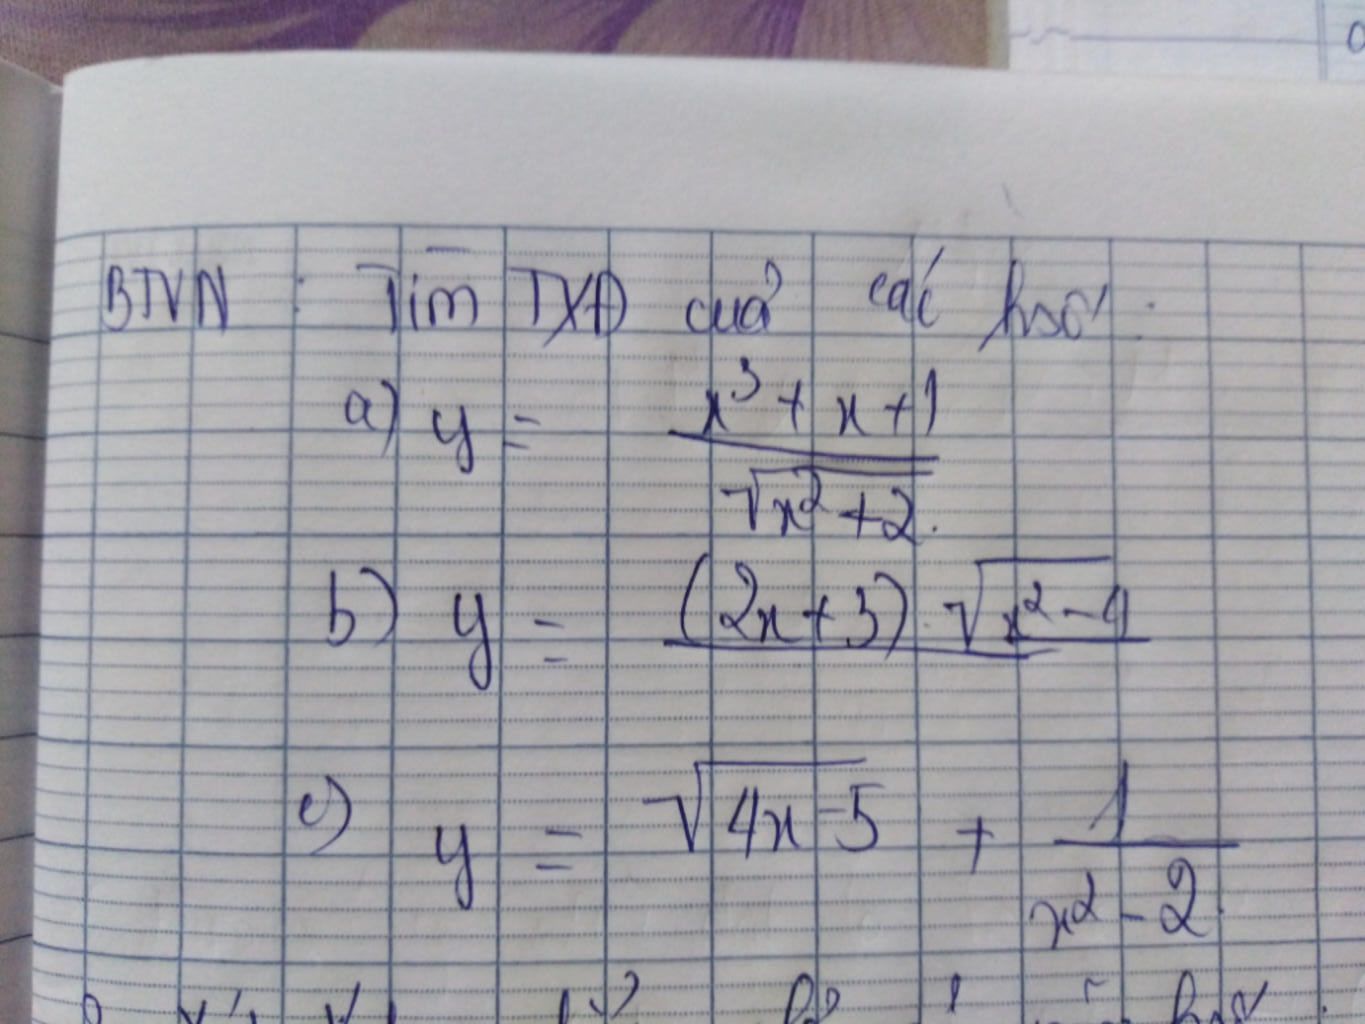 BTVN : Tìm TXĐ của các hsố :
a) y = \frac{x^3 + x + 1}{\sqrt{x^2 + 2}}
b) y = (2x + 3) . \sqrt{x^2 - 4}
c) y = \sqrt{4x - 5} + \frac{1}{x^2 - 2}